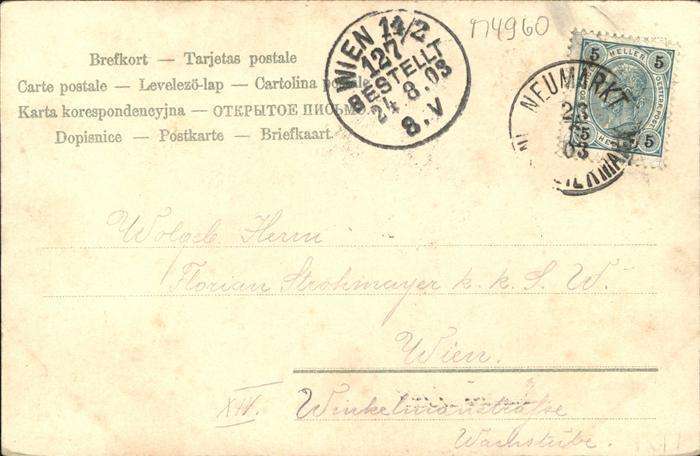 Brefkort — Tarjetas postale
Carte postale — Levelező-lap — Cartolina postale
Karta korespondencyjna — ОТКРЫТОЕ ПИСЬМО.
Dopisnice — Postkarte — Briefkaart.
WIEN 14/2
127
BESTELLT
24.8.03
8.V
174960
5 HELLER 5
5 5
NEUMARKT
23
8
03
Wolgeb. Herrn
Florian Strohmayer k. k. S. W.
Wien.
XIV. Winkelmannstraße
Wachstube.